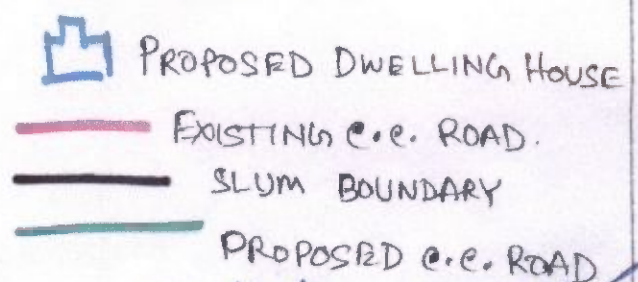 PROPOSED DWELLING HOUSE
EXISTING C.C. ROAD.
SLUM BOUNDARY
PROPOSED C.C. ROAD